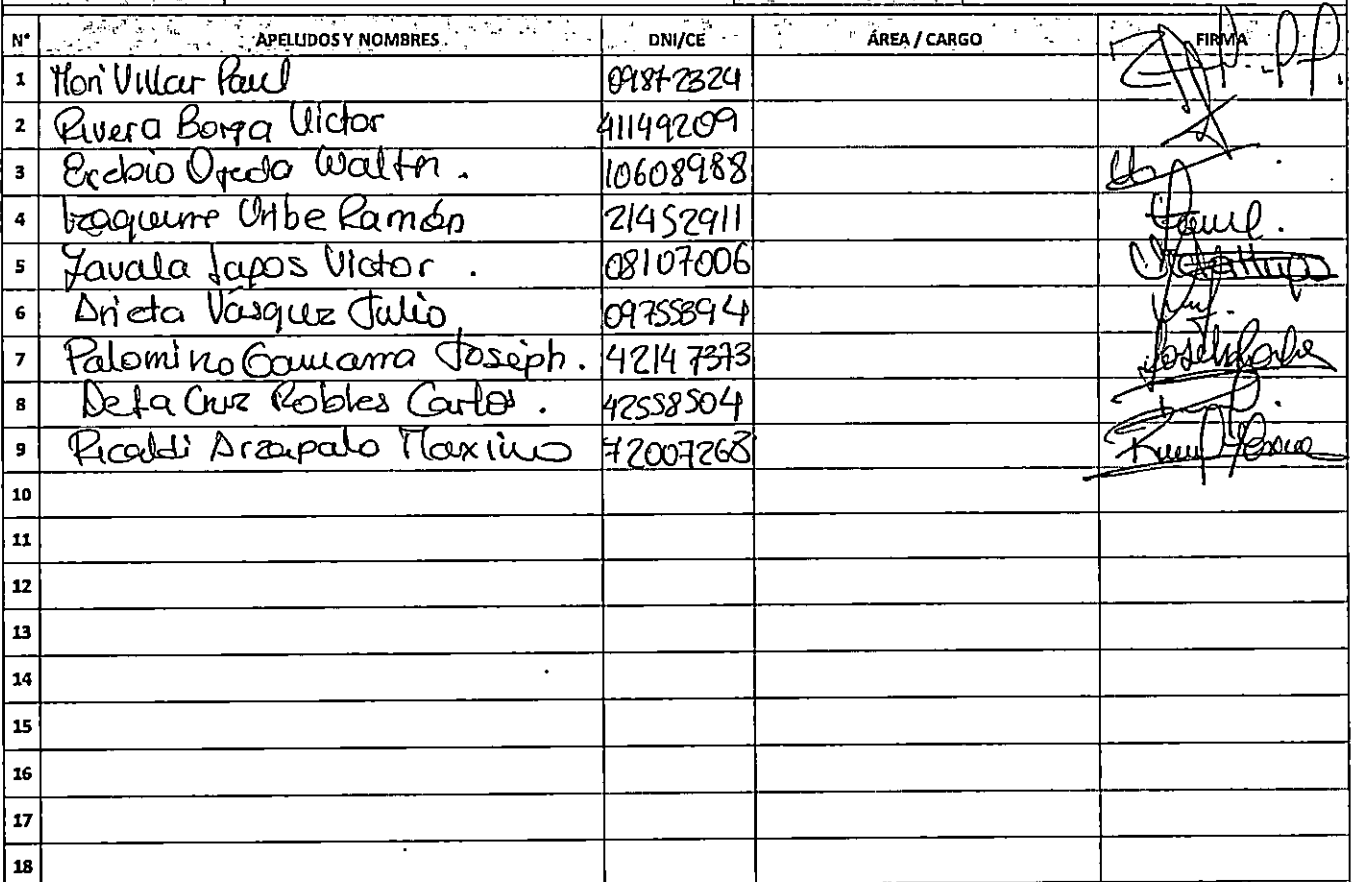 N° APELLIDOS Y NOMBRES DNI/CE ÁREA / CARGO FIRMA
1 Mori Villar Paul 09872324
2 Rivera Borga Victor 41149209
3 Ojeda Walter. 10608988
4 Uribe Ramón 21452911
5 Zavala Victor. 08107006
6 Arieta Vásquez Julio 09755894
7 Palomino Gamarra Joseph. 42147373
8 De La Cruz Robles Carlos. 42558504
9 Ricaldi Arzapalo Maximo 72007268
10
11
12
13
14
15
16
17
18